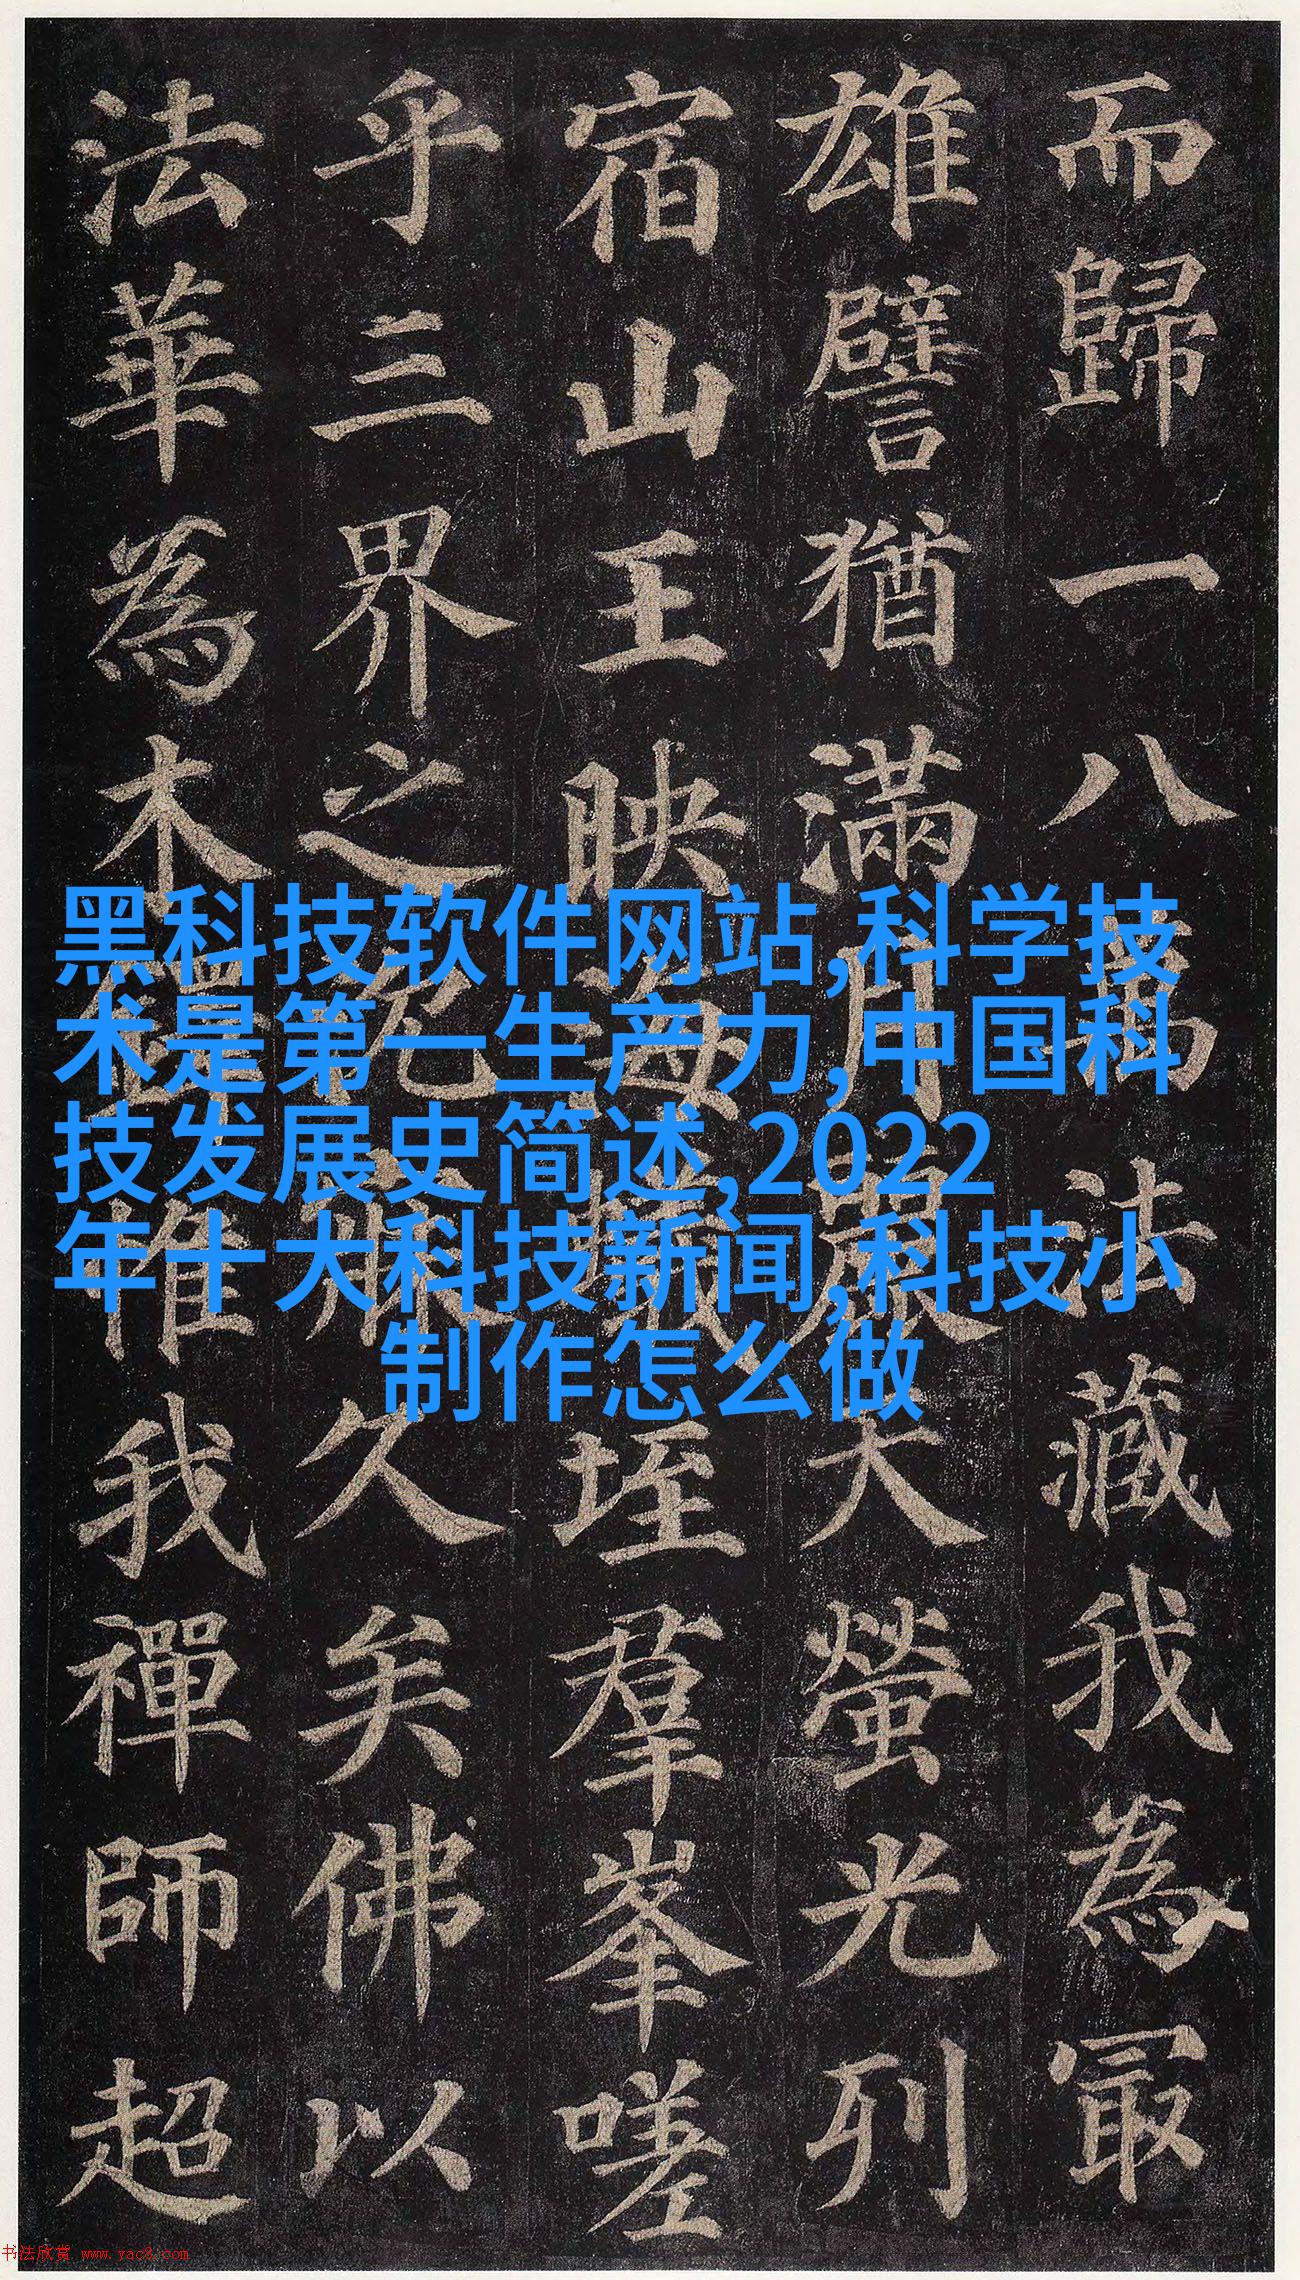 而歸一八萬法藏我為冣
雄譬猶滿月麗天螢光列
宿山王映海蟻垤羣峯嗟
乎三界之沈寐久矣佛以
法華為木鐸惟我禪師超
黑科技软件网站,科学技
术是第一生产力,中国科
技发展史简述,2022
年十大科技新闻,科技小
制作怎么做
书法欣赏 www.yac8.com